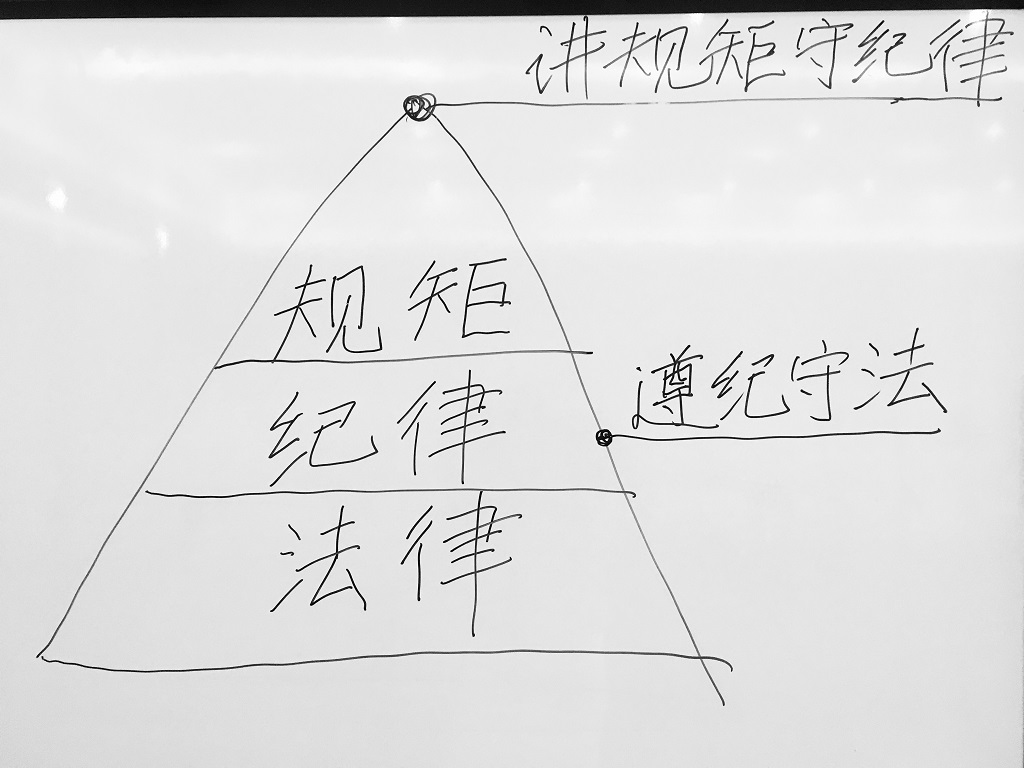 讲规矩守纪律
规矩
遵纪守法
纪律
法律